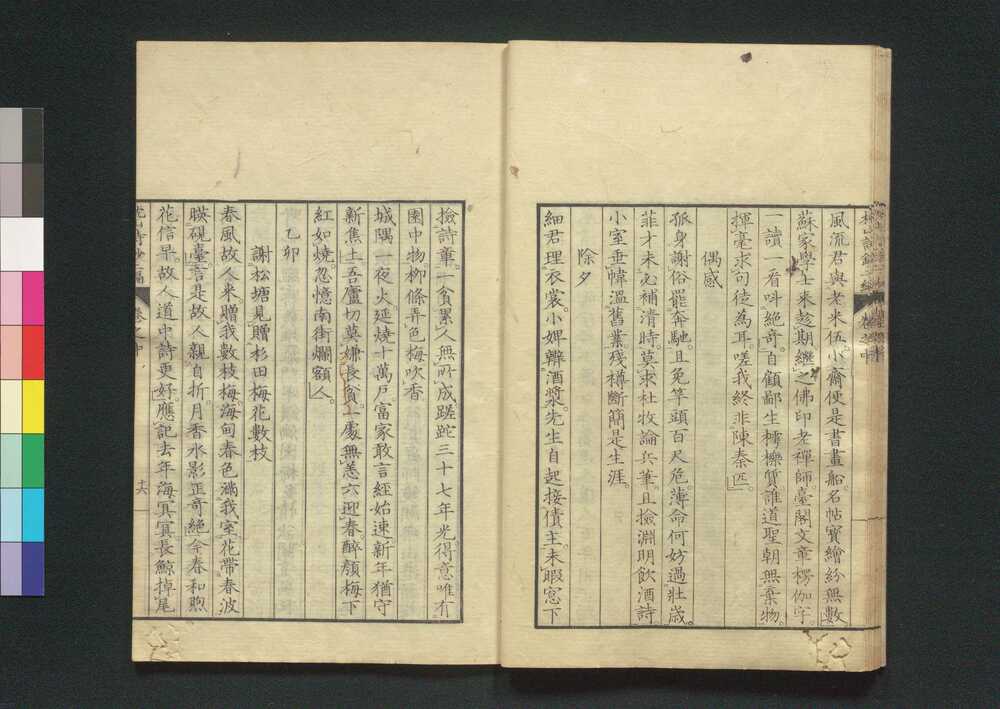 風流君與老米伍小齋便是書畫船名帖寶繪紛無數
蘇家學士來趁期繼之佛印老禪師臺閣文章楞伽字
一讀一看叫絕奇自顧鄙生樗櫟質誰道聖朝無棄物
揮毫求句徒為耳嗟我終非陳秦匹
偶感
孤身謝俗罷奔馳且免竿頭百尺危薄命何妨過壯歲
菲才未必補清時莫求杜牧論兵筆且撿淵明飲酒詩
小室垂幃溫舊業殘樽斷簡是生涯
除夕
細君理衣裳小婢辨酒漿先生自起接債主未暇窓下
撿詩章一貧累人無所成蹉跎三十七年光得意唯有
園中物柳條弄色梅吹香
乙卯
城隅一夜火延燒十萬戶富家敢言經始速新年猶守
新焦土吾廬切莫嫌長貧一處無恙六迎春醉顏梅下
紅如燒忽憶南街爛額人
謝松塘見贈杉田梅花數枝
春風故人來贈我數枝梅海甸春色滿我室花帶春波
暎硯臺言是故人親自折月香水影正奇絕今春和煦
花信早故人道中詩更好應記去年海冥冥長鯨掉尾
十六